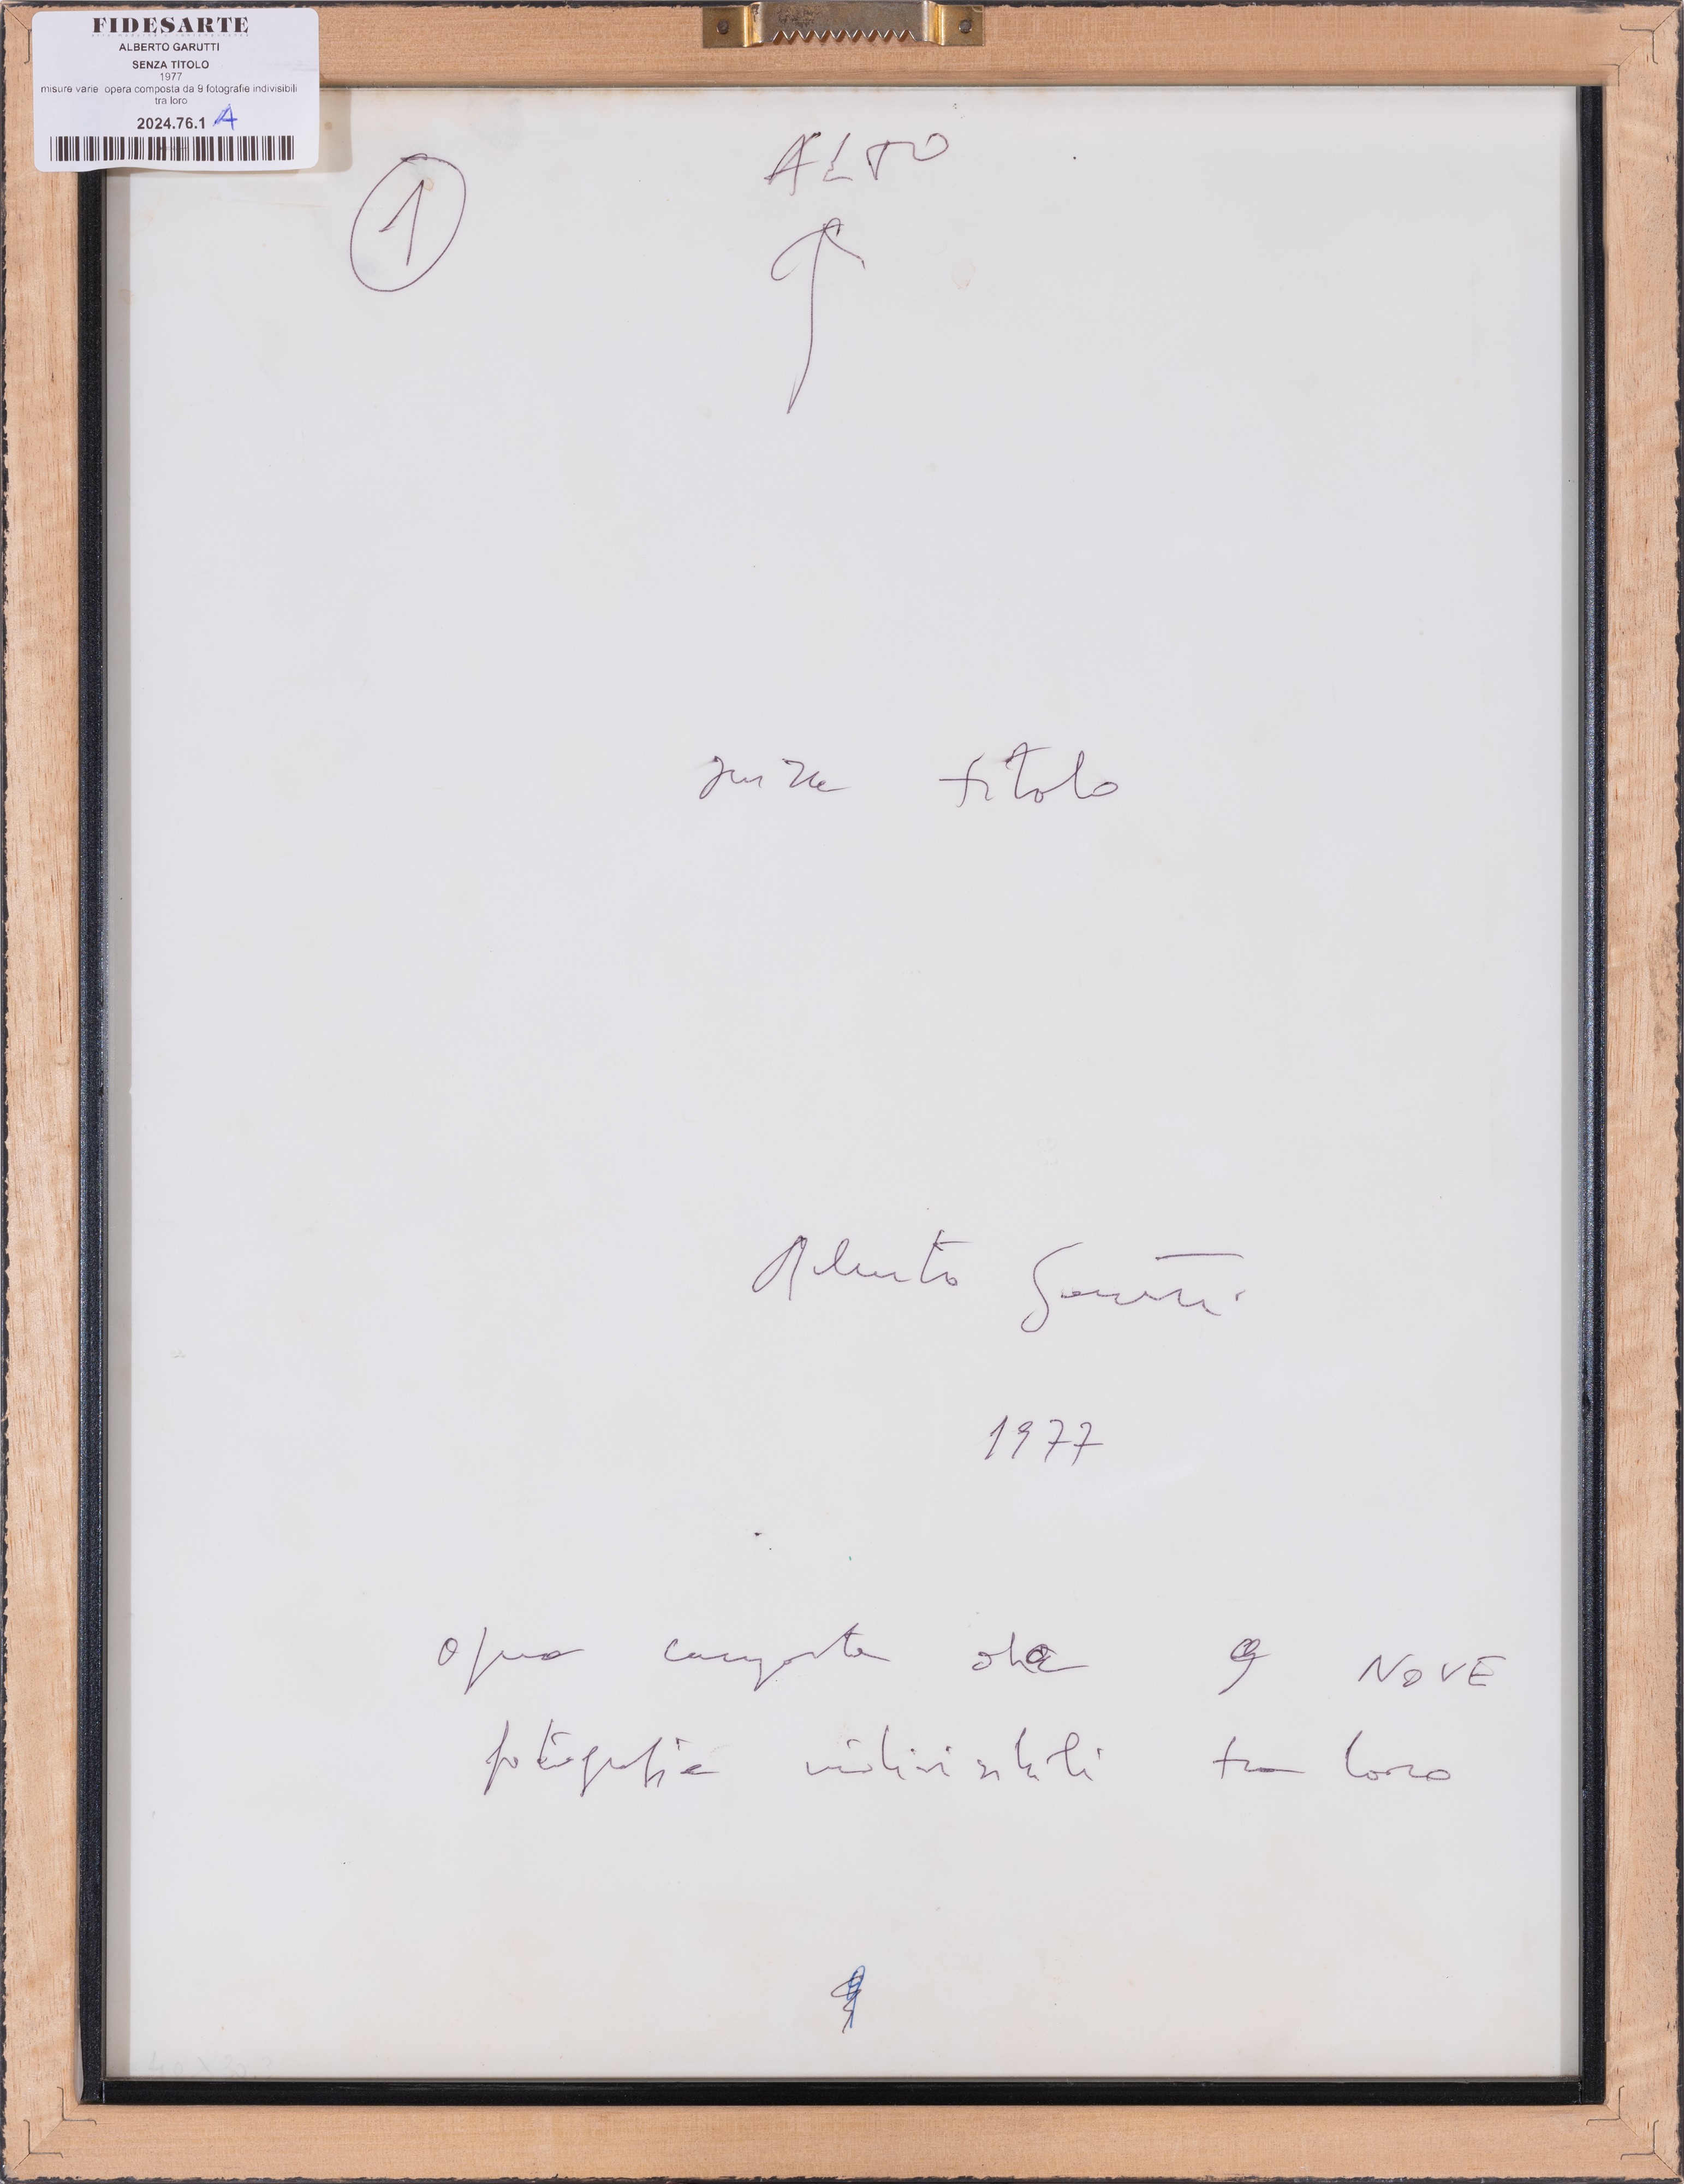 FIDESARTE
ALBERTO GARUTTI
SENZA TITOLO
1977
misure varie opera composta da 9 fotografie indivisibili
tra loro
2024.76.1 A
1
ALTO
senza titolo
Alberto Garutti
1977
opera composta da 9 NOVE
fotografie indivisibili tra loro